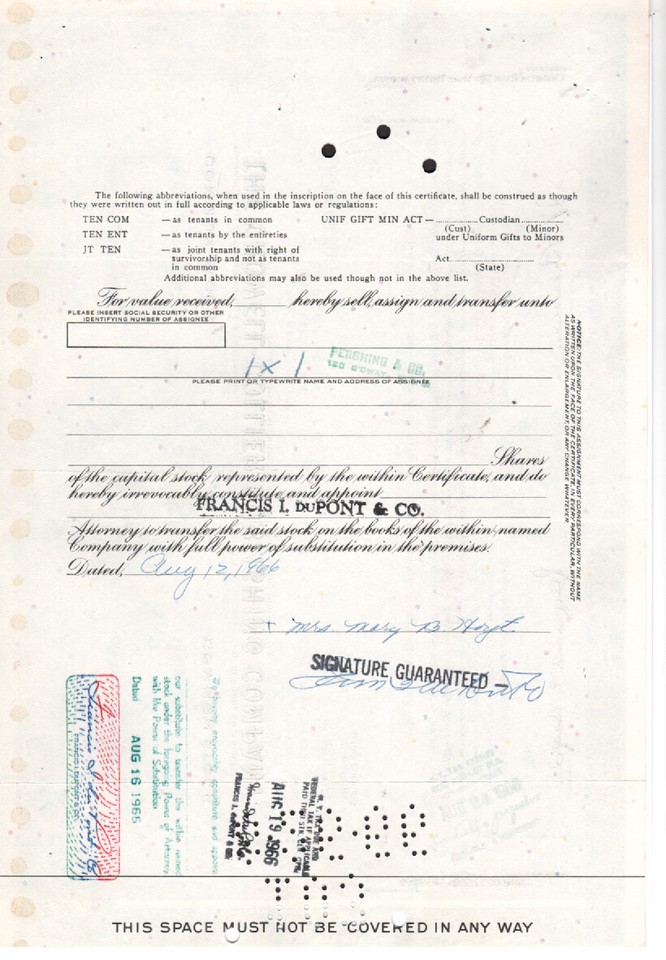 The following abbreviations, when used in the inscription on the face of this certificate, shall be construed as though
they were written out in full according to applicable laws or regulations:
TEN COM —as tenants in common UNIF GIFT MIN ACT— Custodian
(Cust) (Minor)
TEN ENT —as tenants by the entireties under Uniform Gifts to Minors
JT TEN —as joint tenants with right of
survivorship and not as tenants
in common
Act
(State)
Additional abbreviations may also be used though not in the above list.
For value received, hereby sell, assign and transfer unto
PLEASE INSERT SOCIAL SECURITY OR OTHER
IDENTIFYING NUMBER OF ASSIGNEE
1x1
PERSHING & CO.
PLEASE PRINT OR TYPEWRITE NAME AND ADDRESS OF ASSIGNEE
Shares
of the capital stock represented by the within Certificate, and do
hereby irrevocably constitute and appoint
FRANCIS I. DUPONT & CO.
Attorney to transfer the said stock on the books of the within named
Company with full power of substitution in the premises.
Dated, Aug 12, 1966
NOTICE: THE SIGNATURE TO THIS ASSIGNMENT MUST CORRESPOND WITH THE NAME
AS WRITTEN UPON THE FACE OF THE CERTIFICATE, IN EVERY PARTICULAR, WITHOUT
ALTERATION OR ENLARGEMENT, OR ANY CHANGE WHATEVER.
x Mrs. Mary B. Hoyt.
SIGNATURE GUARANTEED
our substitute to transfer the within named
stock under the foregoing Power of Attorney
with like Power of Substitution
Dated AUG 16 1966
Francis I. duPont & Co
AUG 19 1966
FRANCIS I. duPONT & CO.
THIS SPACE MUST NOT BE COVERED IN ANY WAY